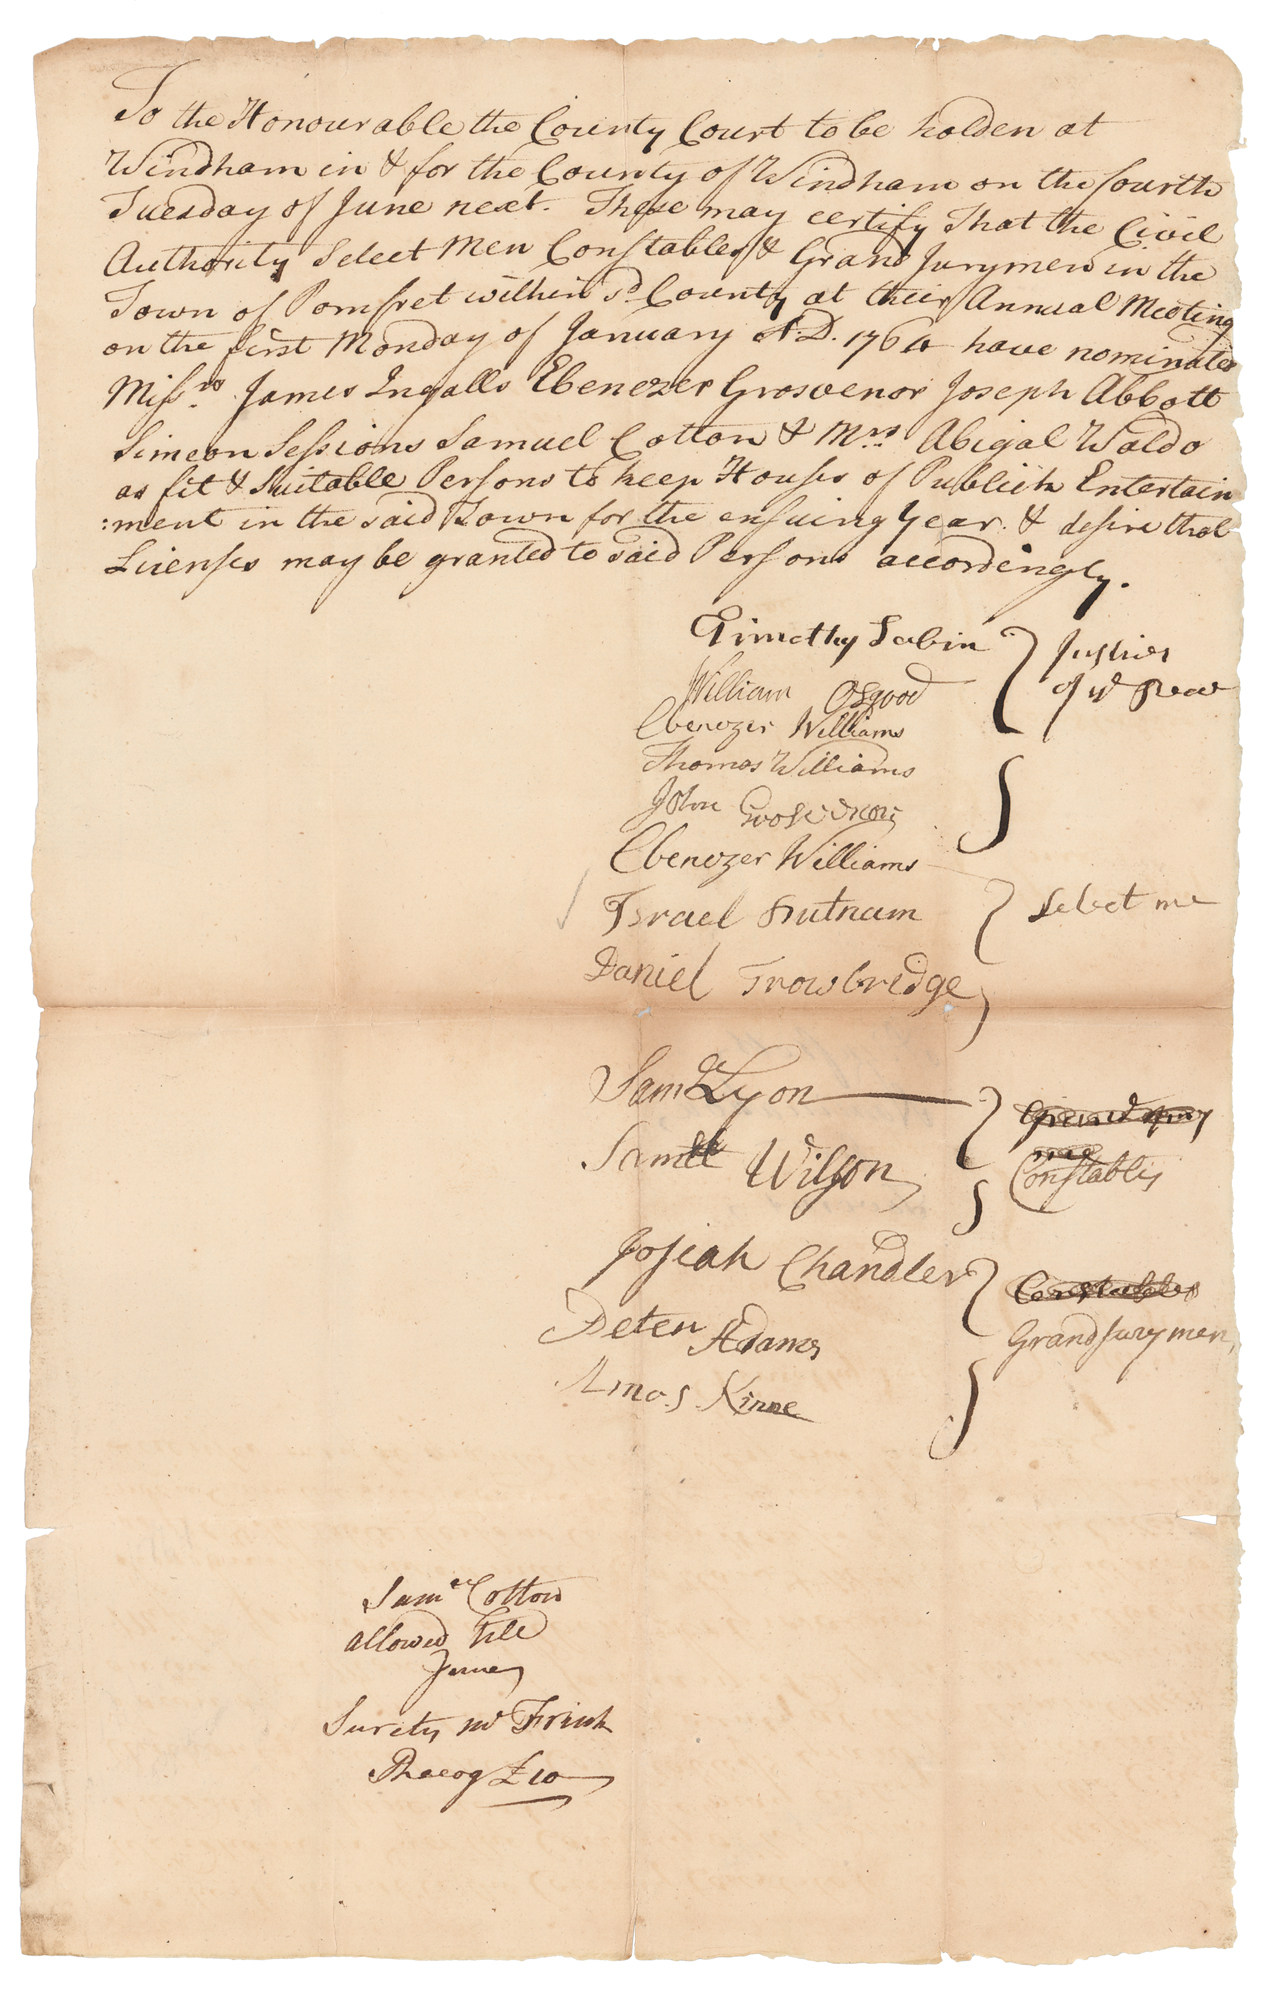 To the Honourable the County Court to be holden at
Windham in & for the County of Windham on the fourth
Tuesday of June next. These may certify That the Civil
Authority Select Men Constables & Grand Jurymen in the
Town of Pomfret within sd County at their Annual Meeting
on the first Monday of January A.D. 1764 have nominated
Messrs James Ingalls Ebenezer Grosvenor Joseph Abbott
Simeon Sessions Samuel Cotton & Mrs Abigal Waldo
as fit & Suitable Persons to keep Houses of Publick Entertain
:ment in the said Town for the ensuing Year. & desire that
Licenses may be granted to said Persons accordingly.
Timothy Sabin Justices
William Osgood of ye Peace
Ebenezer Williams
Thomas Williams
John Grosvenor
Ebenezer Williams
Israel Putnam Select me
Daniel Trowbridge
Saml Lyon Grand jury
men
Samll Wilson Constables
Josiah Chandler Constables
Peter Adams Grand jury men
Amos Kinne
Saml Cotton
allowed till
June
Surety mr Frink
Recog £10